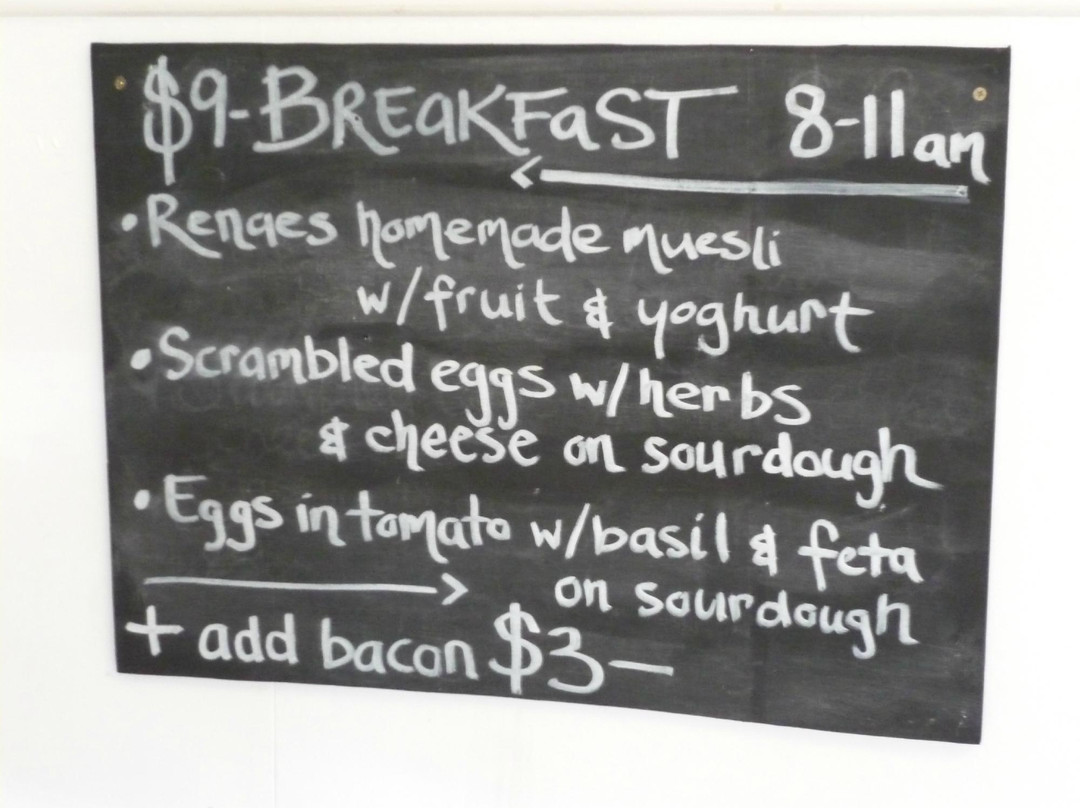 $9-BREAKFaST 8-11am
•Renaes homemade muesli
w/fruit & yoghurt
•Scrambled eggs w/herbs
& cheese on sourdough
•Eggs in tomato w/basil & feta
on sourdough
+ add bacon $3—